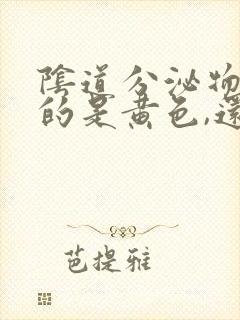 陰道分泌物
的是黃色,還
芭提雅